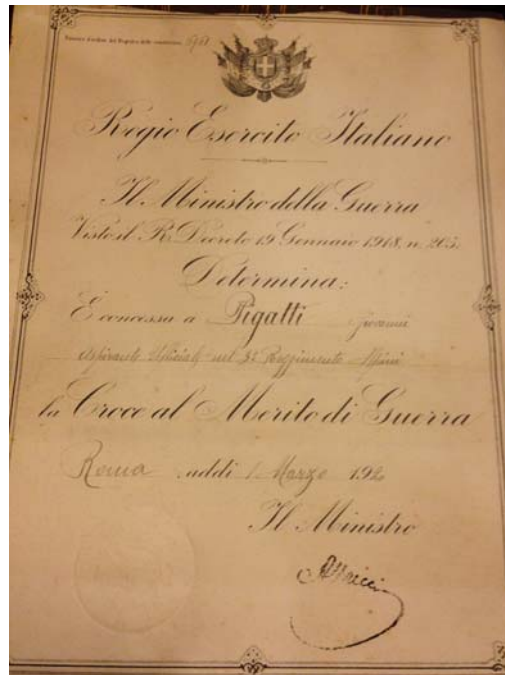 Numero d'ordine del Registro delle concessioni
Regio Esercito Italiano
Il Ministro della Guerra
Visto il R. Decreto 19 Gennaio 1918, n. 205;
Determina:
È concessa a Pigatti Giovanni
Aspirante Ufficiale nel 3° Reggimento Alpini
la Croce al Merito di Guerra
Roma addì 1 Marzo 1920
Il Ministro